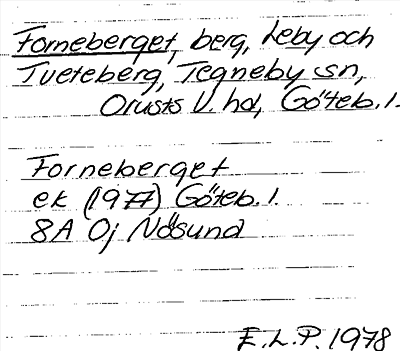 Forneberget, berg, Leby och
Tveteberg, Tegneby sn,
Orusts V. hd, Göteb. l.
Forneberget
ek (1977) Göteb. l.
8A Oj Nösund
E.L.P. 1978